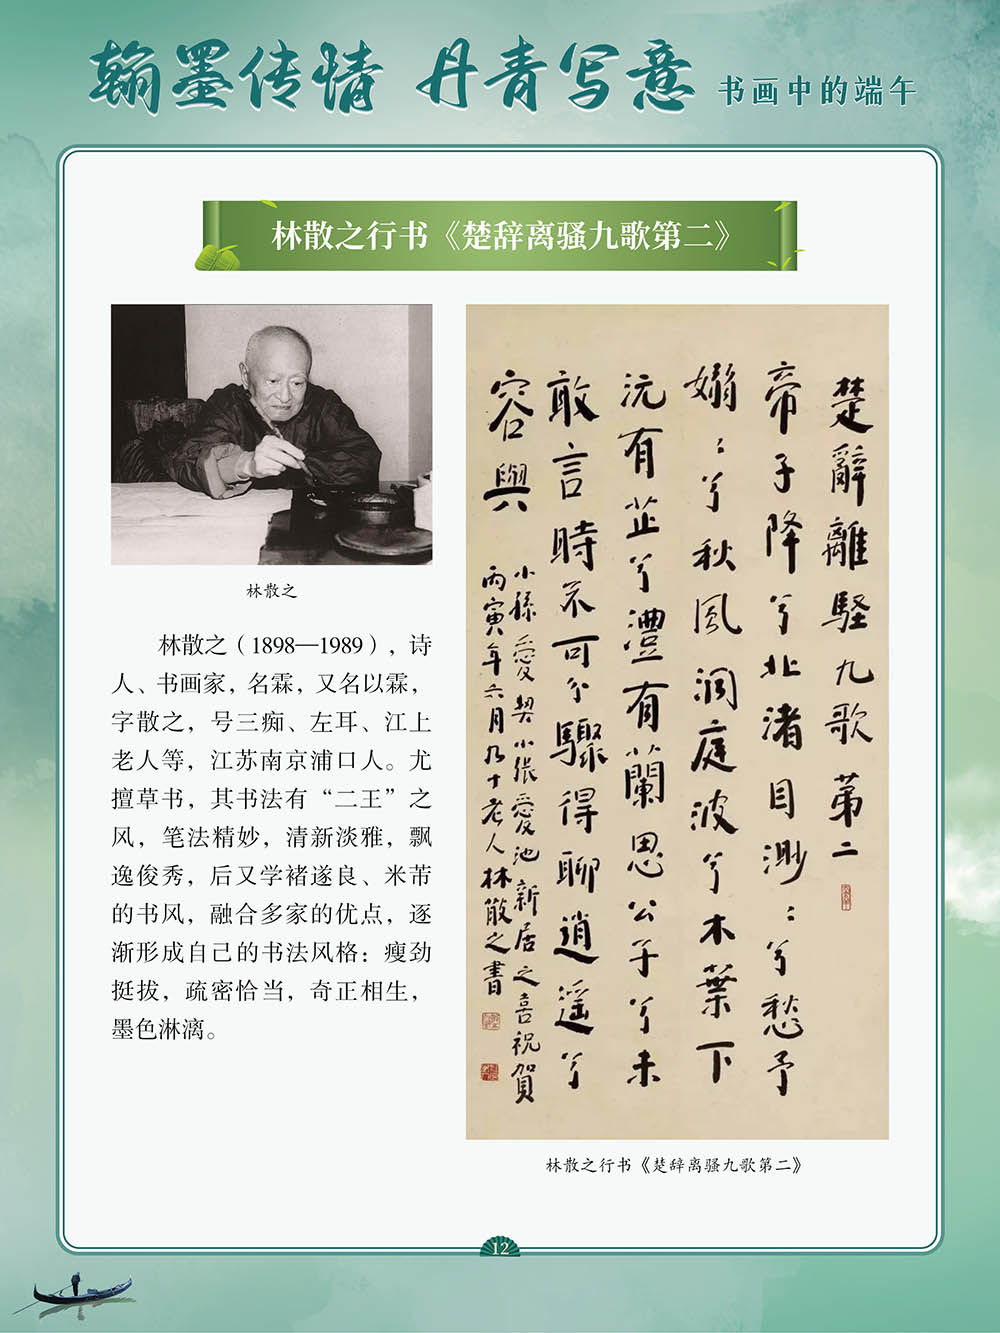 翰墨传情 丹青写意 书画中的端午
林散之行书《楚辞离骚九歌第二》
林散之
林散之（1898—1989），诗
人、书画家，名霖，又名以霖，
字散之，号三痴、左耳、江上
老人等，江苏南京浦口人。尤
擅草书，其书法有“二王”之
风，笔法精妙，清新淡雅，飘
逸俊秀，后又学褚遂良、米芾
的书风，融合多家的优点，逐
渐形成自己的书法风格：瘦劲
挺拔，疏密恰当，奇正相生，
墨色淋漓。
楚辭離騷九歌第二
帝子降兮北渚目渺〻兮愁予
嫋〻兮秋風洞庭波兮木葉下
沅有芷兮澧有蘭思公子兮未
敢言時不可兮驟得聊逍遥兮
容與
小孫愛契小張愛池新居之喜祝賀
丙寅年六月九十老人林散之書
林散之行书《楚辞离骚九歌第二》
12